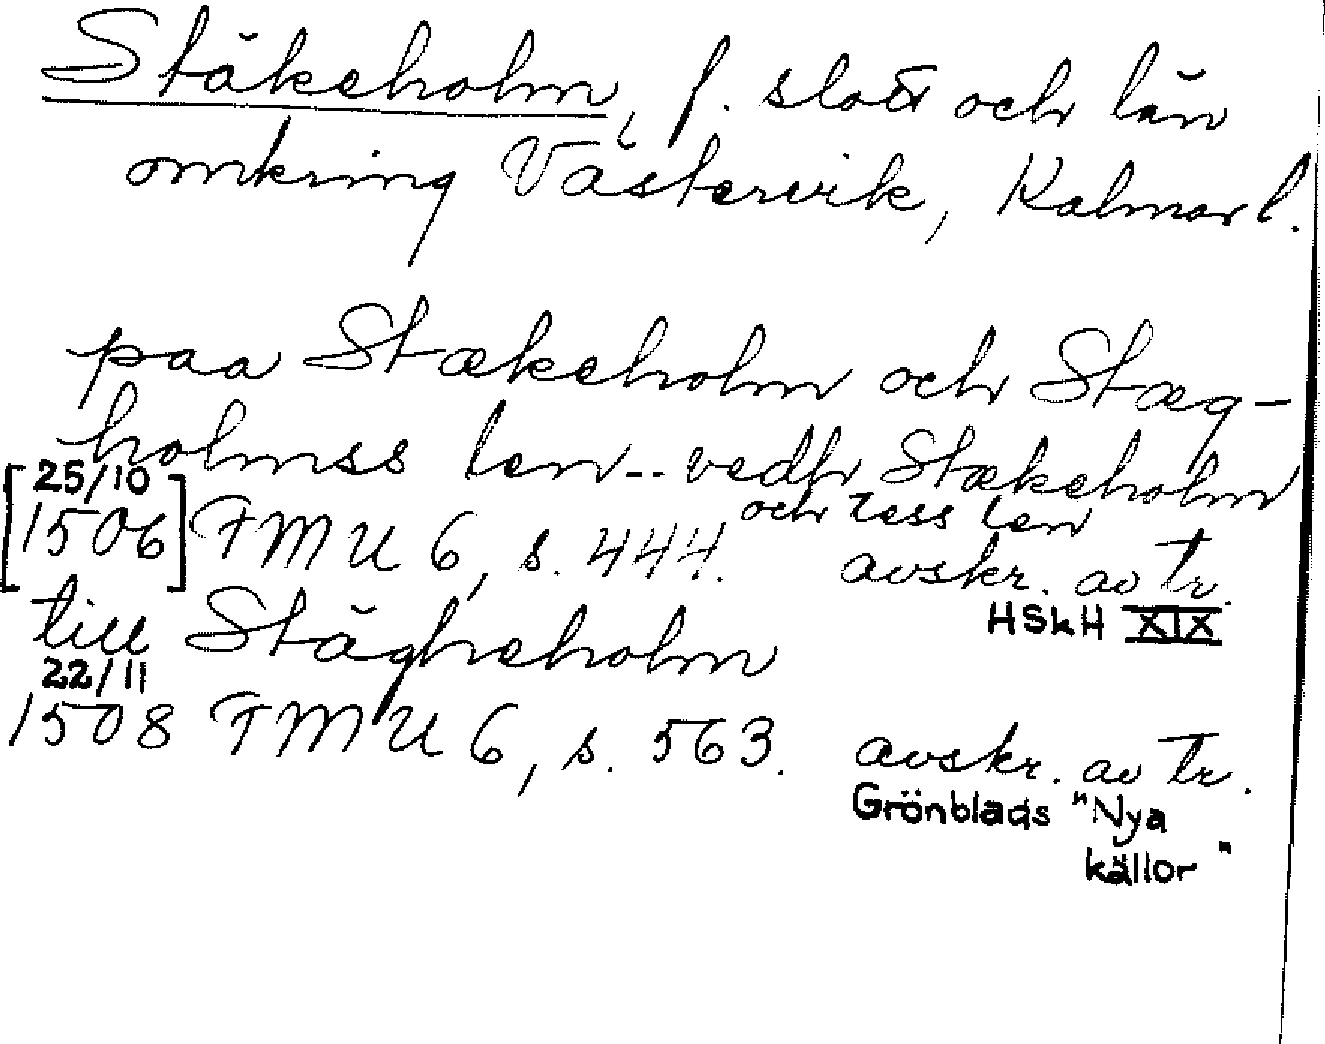 Stäkeholm, f. slott och län
omkring Västervik, Kalmar l.
paa Stækeholm och Stæg-
holmss len-- vedh Stækeholm
och tess len
[25/10
1506] FMU 6, s. 444. avskr. av tr.
HSkH XIX
till Stägheholm
22/11
1508 FMU 6, s. 563. avskr. av tr.
Grönblads "Nya
källor"